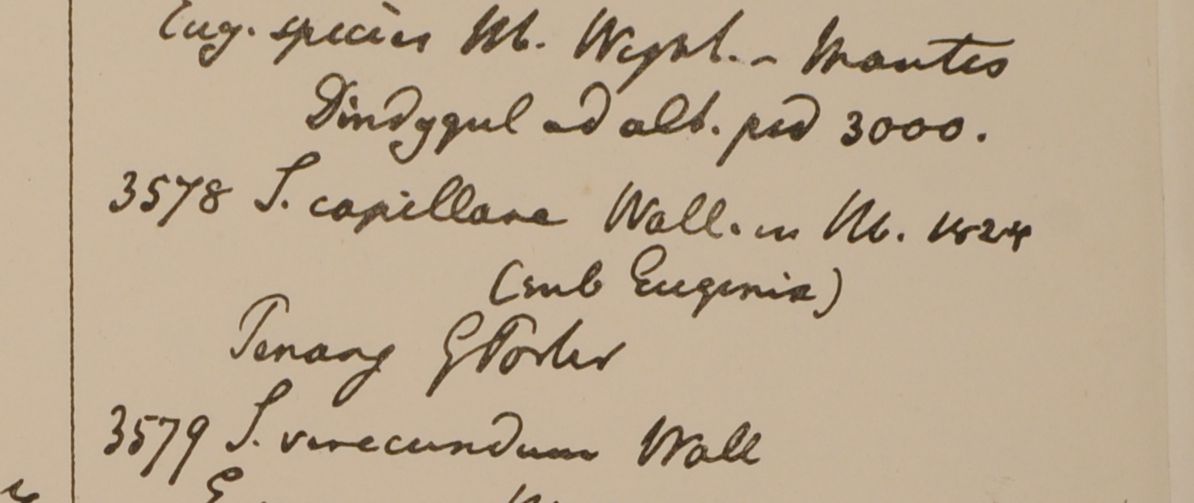 Eug. species Hb. Wight. - Montes
Dindygul ad alt. ped 3000.
3578 S. capillare Wall. in Hb. 1824
(sub Eugenia)
Penang G Porter
3579 S. verecundum Wall